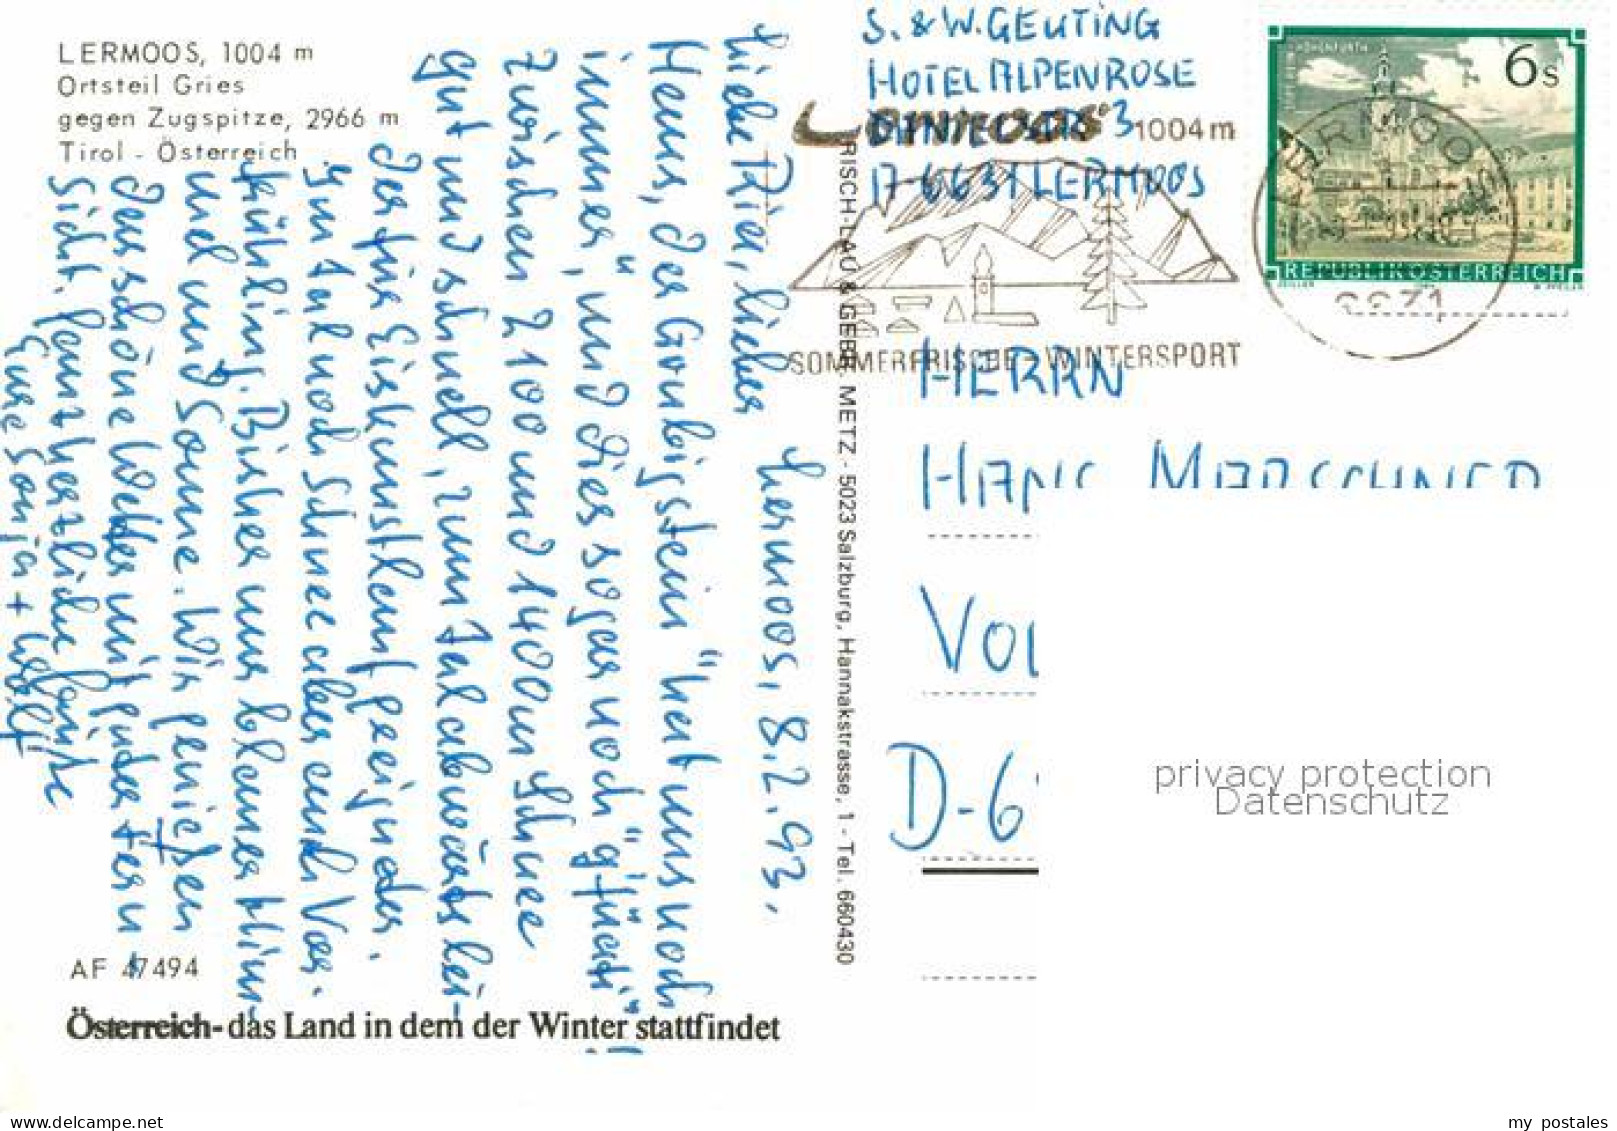 LERMOOS, 1004 m
Ortsteil Gries
gegen Zugspitze, 2966 m
Tirol - Österreich
Lermoos, 8.2.93.
Liebe Ria, lieber
Hans, der Gaubigstein "hat uns noch
immer", und dies sogar noch "günstig"!
Zwischen 2100 und 1400m Schnee
gut und schnell, zum Tal abwärts lei-
der für Eiskunstlauf geeignder.
Im Tal noch Schnee aber auch Vor-
frühling. Bisher nur blauer Him-
mel und Sonne. Wir genießen
das schöne Wetter mit guter Fern-
sicht. Ganz herzliche Grüße
Eure Sonja + Wolf
AF 47494
Österreich-das Land in dem der Winter stattfindet
RISCH-LAU & GEBR. METZ - 5023 Salzburg, Hannakstrasse, 1 - Tel. 660430
S. & W. GEUTING
HOTEL ALPENROSE
LERMOOS 1004 m
A-6631 LERMOOS
SOMMERFRISCHE - WINTERSPORT
6 S
HOHENFURTH
REPUBLIK ÖSTERREICH
HERRN
HANS MARSCHNER
VOL
D-6
privacy protection
Datenschutz
my postales